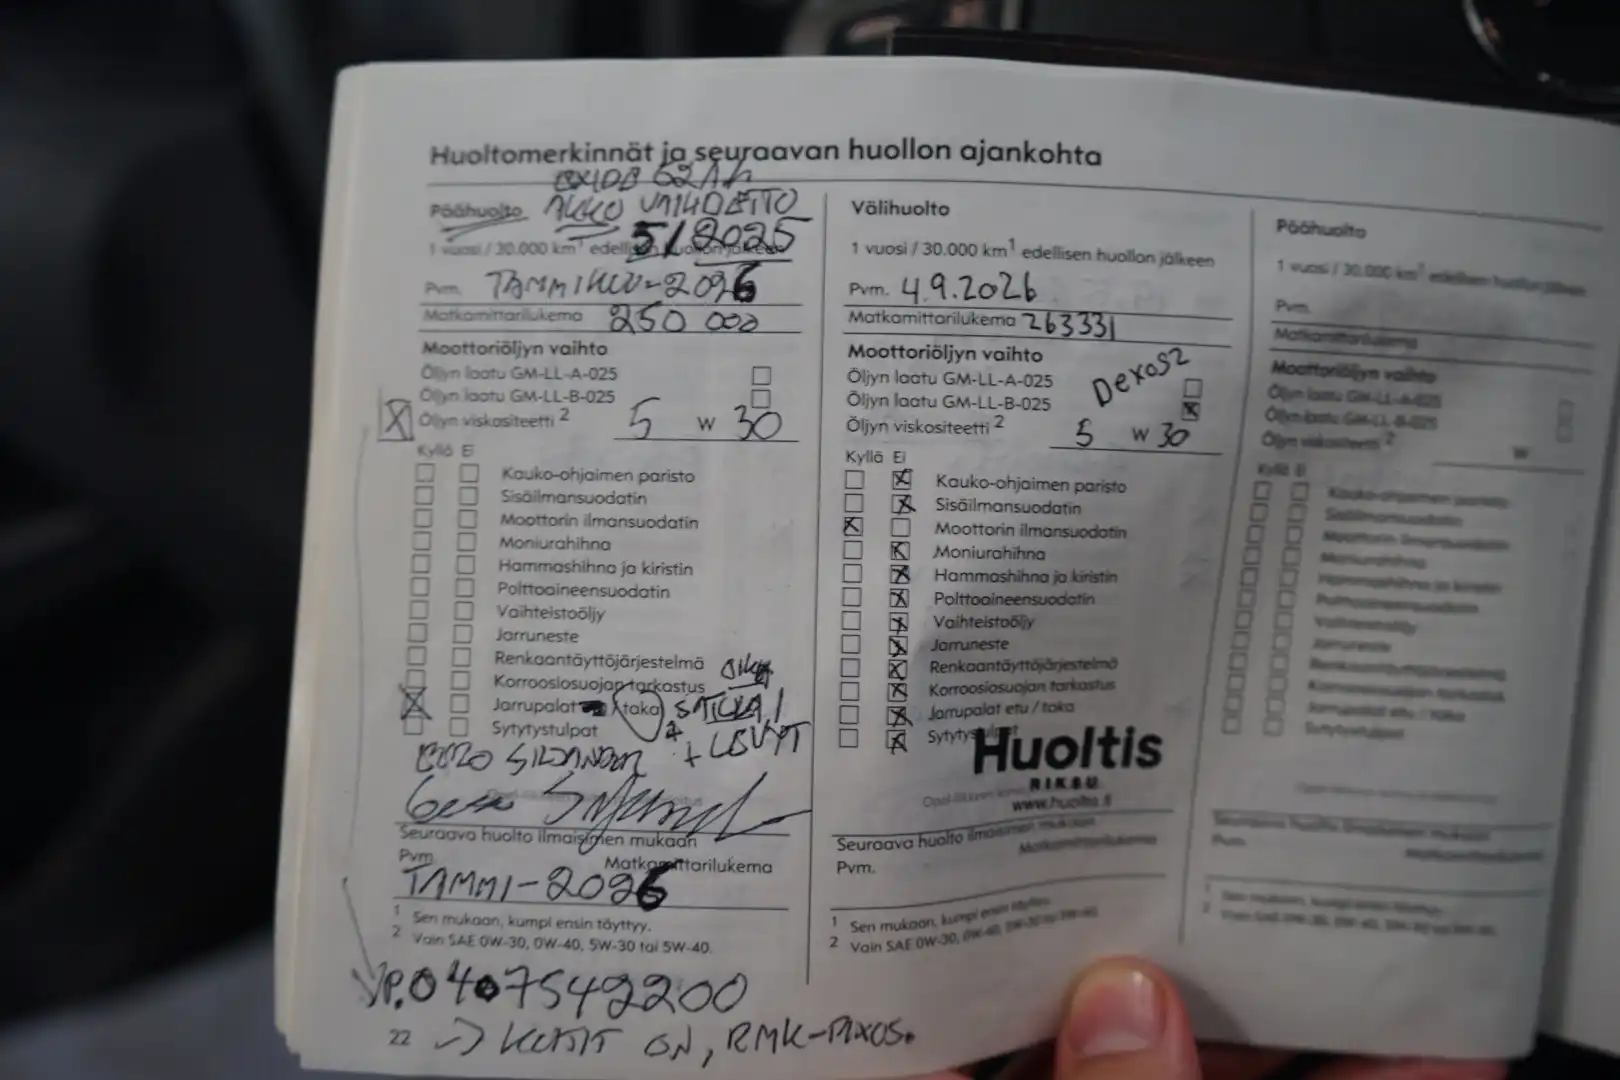 Huoltomerkinnät ja seuraavan huollon ajankohta
62Ah
Päähuolto AKKO VAIHDETTO
5/2025
1 vuosi / 30.000 km¹ edellisen huollon jälkeen
Pvm. TAMMIKUU-2026
Matkamittarilukema 250 000
Moottoriöljyn vaihto
Öljyn laatu GM-LL-A-025
Öljyn laatu GM-LL-B-025
Öljyn viskositeetti 2 5 W 30
Kyllä Ei
Kauko-ohjaimen paristo
Sisäilmansuodatin
Moottorin ilmansuodatin
Moniurahihna
Hammashihna ja kiristin
Polttoaineensuodatin
Vaihteistoöljy
Jarruneste
Renkaantäyttöjärjestelmä
Korroosiosuojan tarkastus
Jarrupalat / taka
+ LEVYT
Sytytystulpat
Seuraava huolto ilmaisimen mukaan
Pvm. Matkamittarilukema
TAMMI-2026
1 Sen mukaan, kumpi ensin täyttyy.
2 Vain SAE 0W-30, 0W-40, 5W-30 tai 5W-40.
P.0407549200
22 -> KUITIT ON, RMK-
Välihuolto
1 vuosi / 30.000 km¹ edellisen huollon jälkeen
Pvm. 4.9.2026
Matkamittarilukema 263331
Moottoriöljyn vaihto
Dexos2
Öljyn laatu GM-LL-A-025
Öljyn laatu GM-LL-B-025
Öljyn viskositeetti 2 5 W 30
Kyllä Ei
Kauko-ohjaimen paristo
Sisäilmansuodatin
Moottorin ilmansuodatin
Moniurahihna
Hammashihna ja kiristin
Polttoaineensuodatin
Vaihteistoöljy
Jarruneste
Renkaantäyttöjärjestelmä
Korroosiosuojan tarkastus
Jarrupalat etu / taka
Sytytystulpat
Huoltis
RIKSU
www.huoltis.fi
Seuraava huolto ilmaisimen mukaan
Pvm. Matkamittarilukema
1 Sen mukaan, kumpi ensin täyttyy.
2 Vain SAE 0W-30, 0W-40, 5W-30 tai 5W-40.
Päähuolto
1 vuosi / 30.000 km¹ edellisen huollon jälkeen
Pvm.
Matkamittarilukema
Moottoriöljyn vaihto
Öljyn laatu GM-LL-A-025
Öljyn laatu GM-LL-B-025
Öljyn viskositeetti 2 W
Kyllä Ei
Kauko-ohjaimen paristo
Sisäilmansuodatin
Moottorin ilmansuodatin
Moniurahihna
Hammashihna ja kiristin
Polttoaineensuodatin
Vaihteistoöljy
Jarruneste
Renkaantäyttöjärjestelmä
Korroosiosuojan tarkastus
Jarrupalat etu / taka
Sytytystulpat
Seuraava huolto ilmaisimen mukaan
Pvm. Matkamittarilukema